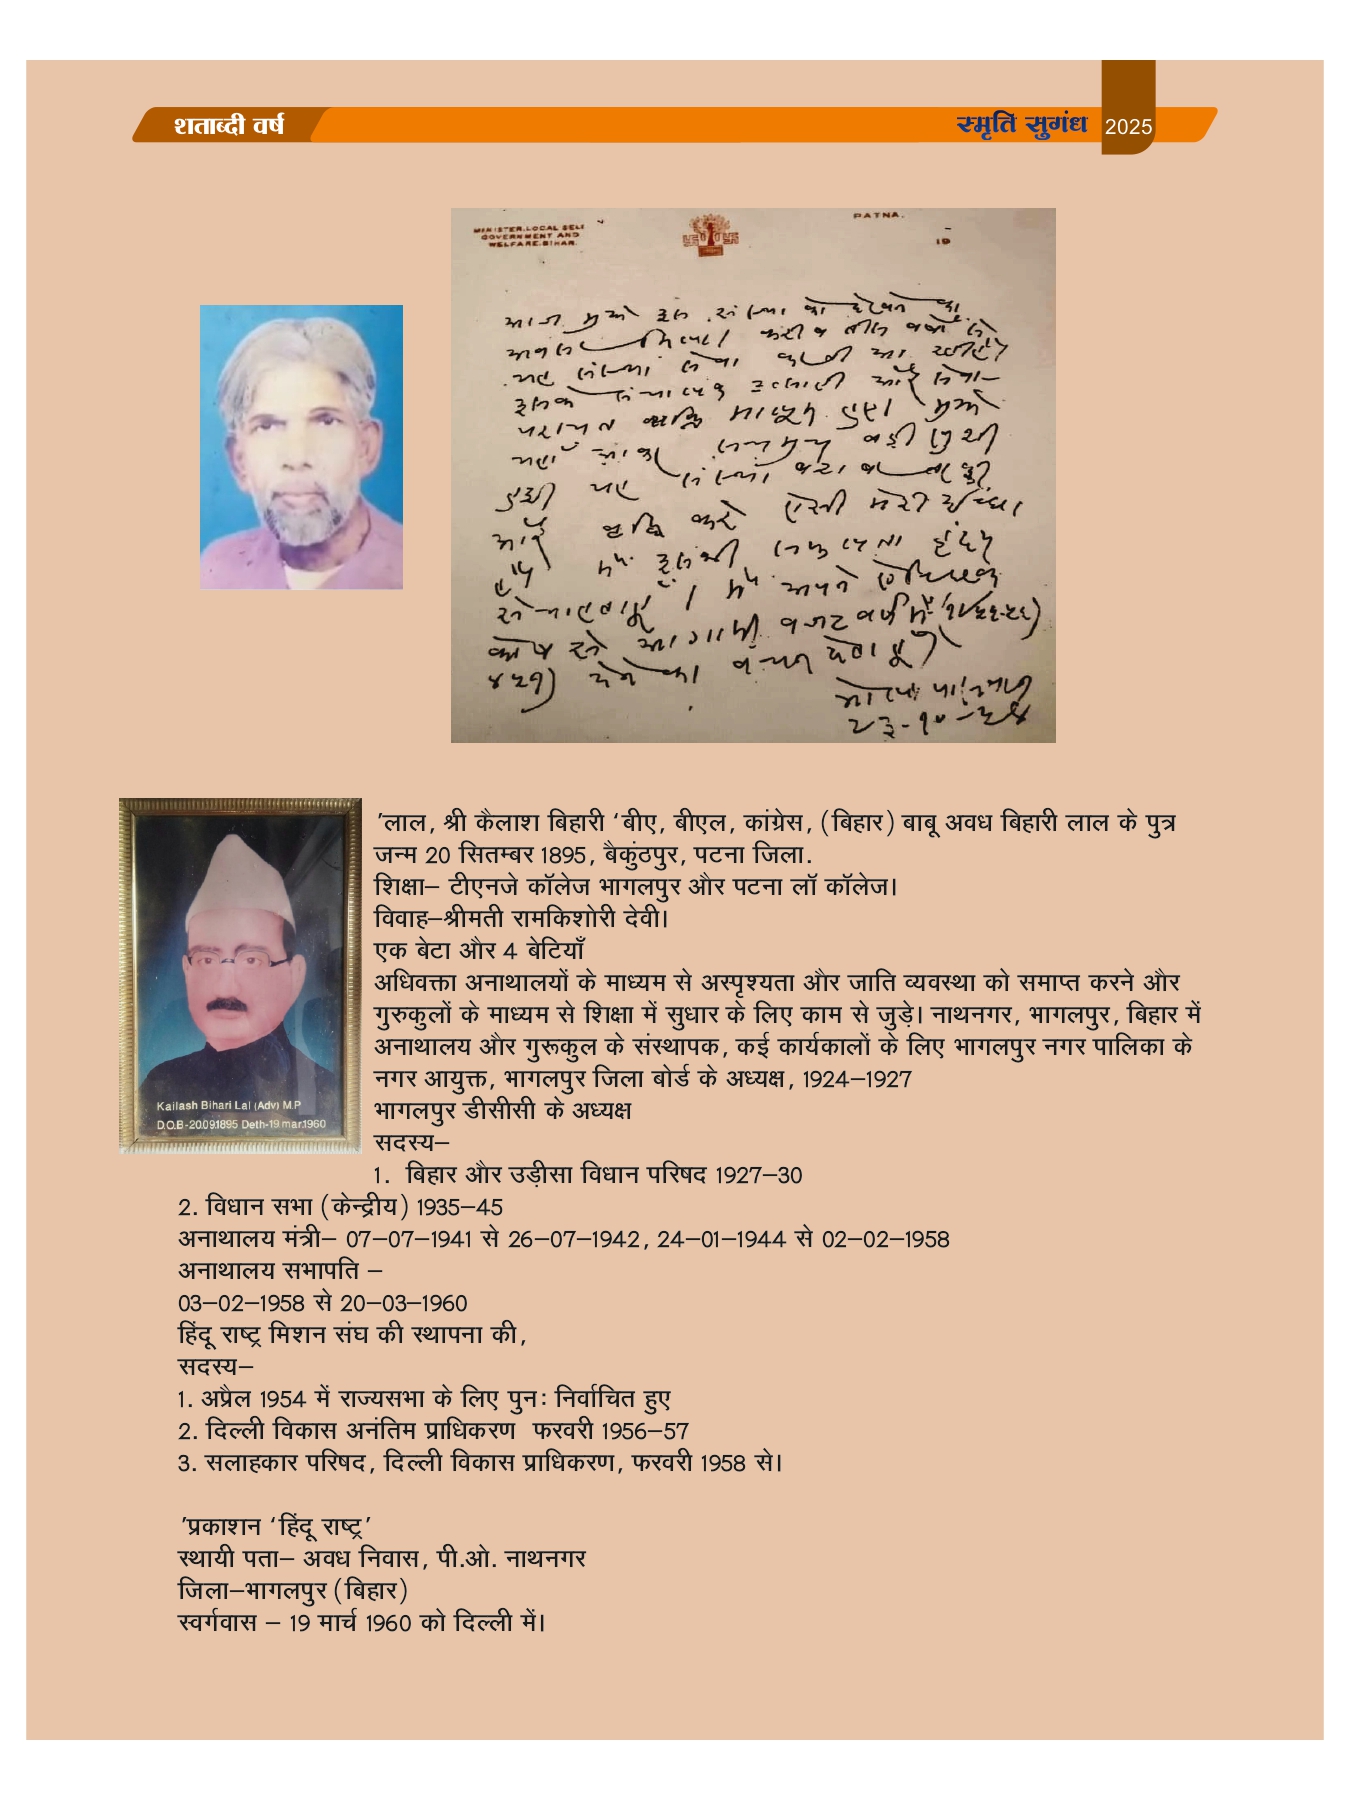 शताब्दी वर्ष
स्मृति सुगंध 2025
MINISTER, LOCAL SELF
GOVERNMENT AND
WELFARE, BIHAR.
PATNA.
19
आज मुझे इस संस्था को देखने का
अवसर मिला। करीब तीस वर्षों से
यह संस्था सेवा करती आ रही है।
इसके संचालक उत्साही और सेवा-
परायण व्यक्ति मालूम हुए। मुझे
यहाँ आकर सचमुच बड़ी खुशी
हुई यह संस्था
और वृद्धि करे ऐसी मेरी इच्छा
है। मैं इसकी सफलता हृदय
से चाहता हूँ। मैं अपने ऐच्छिक
कोष से आगामी बजट वर्ष में
देने का वचन देता हूँ।
भोला पासवान
२३-१०-६४
’लाल, श्री कैलाश बिहारी ‘बीए, बीएल, कांग्रेस, (बिहार) बाबू अवध बिहारी लाल के पुत्र
जन्म 20 सितम्बर 1895, बैकुंठपुर, पटना जिला.
शिक्षा– टीएनजे कॉलेज भागलपुर और पटना लॉ कॉलेज।
विवाह–श्रीमती रामकिशोरी देवी।
एक बेटा और 4 बेटियाँ
अधिवक्ता अनाथालयों के माध्यम से अस्पृश्यता और जाति व्यवस्था को समाप्त करने और
गुरुकुलों के माध्यम से शिक्षा में सुधार के लिए काम से जुड़े। नाथनगर, भागलपुर, बिहार में
अनाथालय और गुरूकुल के संस्थापक, कई कार्यकालों के लिए भागलपुर नगर पालिका के
नगर आयुक्त, भागलपुर जिला बोर्ड के अध्यक्ष, 1924–1927
भागलपुर डीसीसी के अध्यक्ष
सदस्य–
Kailash Bihari Lal (Adv) M.P
D.O.B-20.09.1895 Deth-19 mar.1960
1. बिहार और उड़ीसा विधान परिषद 1927–30
2. विधान सभा (केन्द्रीय) 1935–45
अनाथालय मंत्री– 07–07–1941 से 26–07–1942, 24–01–1944 से 02–02–1958
अनाथालय सभापति –
03–02–1958 से 20–03–1960
हिंदू राष्ट्र मिशन संघ की स्थापना की,
सदस्य–
1. अप्रैल 1954 में राज्यसभा के लिए पुनः निर्वाचित हुए
2. दिल्ली विकास अनंतिम प्राधिकरण फरवरी 1956–57
3. सलाहकार परिषद, दिल्ली विकास प्राधिकरण, फरवरी 1958 से।
’प्रकाशन ‘हिंदू राष्ट्र’
स्थायी पता– अवध निवास, पी.ओ. नाथनगर
जिला–भागलपुर (बिहार)
स्वर्गवास – 19 मार्च 1960 को दिल्ली में।